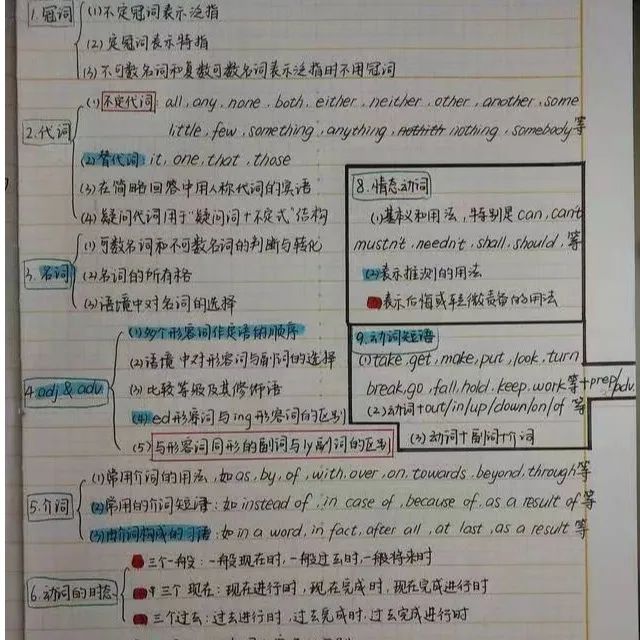 1.冠词
(1)不定冠词表示泛指
(2)定冠词表示特指
(3)不可数名词和复数可数名词表示泛指时不用冠词
2.代词
(1)不定代词: all, any, none, both, either, neither, other, another, some
little, few, something, anything, nothing, somebody等
(2)替代词: it, one, that, those
(3)在简略回答中用人称代词的宾语
(4)疑问代词用于"疑问词+不定式"结构
3.名词
(1)可数名词和不可数名词的判断与转化
(2)名词的所有格
(3)语境中对名词的选择
4.adj & adv
(1)多个形容词作定语的顺序
(2)语境中对形容词与副词的选择
(3)比较等级及其修饰语
(4)ed形容词与ing形容词的区别
(5)与形容词同形的副词与ly副词的区别
5.介词
(1)常用介词的用法,如as, by, of, with, over, on, towards, beyond, through等
(2)常用的介词短语:如instead of, in case of, because of, as a result of等
(3)由介词构成的习语:如in a word, in fact, after all, at last, as a result等
6.动词的时态
三个一般:一般现在时,一般过去时,一般将来时
三个现在:现在进行时,现在完成时,现在完成进行时
三个过去:过去进行时,过去完成时,过去完成进行时
8.情态动词
(1)基本义和用法,特别是can, can't
mustn't, needn't, shall, should,等
(2)表示推测的用法
表示后悔或轻微责备的用法
9.动词短语
(1)take, get, make, put, look, turn
break, go, fall, hold, keep, work等+prep/adv
(2)动词+out/in/up/down/on/of 等
(3)动词+副词+介词